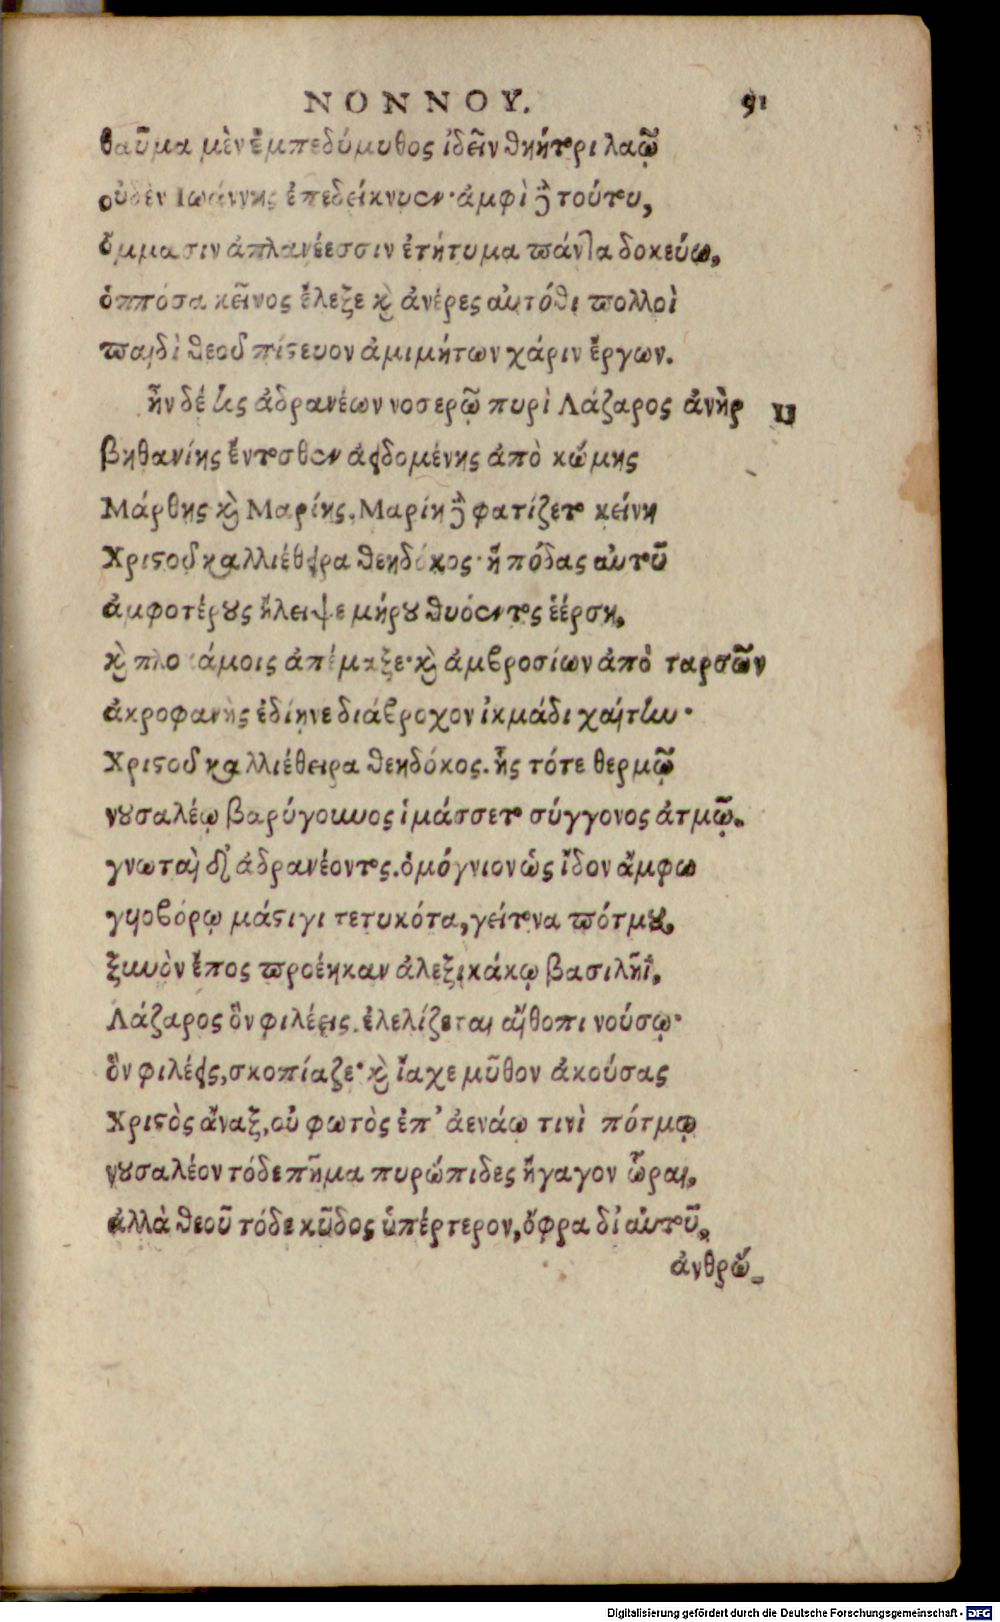 ΝΟΝΝΟΥ. 91
θαῦμα μὲν ἐμπεδόμυθος ἰδεῖν θηήτορι λαῷ
οὐδὲν Ἰωάννης ἐπεδείκνυεν· ἀμφὶ δὲ τούτου,
ὄμμασιν ἀπλανέεσσιν ἐτήτυμα πάντα δοκεύω,
ὁππόσα κεῖνος ἔλεξε καὶ ἀνέρες αὐτόθι πολλοὶ
παιδὶ θεοῦ πίστευον ἀμιμήτων χάριν ἔργων.
ἦν δέ τις ἀδρανέων νοσερῷ πυρὶ Λάζαρος ἀνὴρ
βηθανίης ἔντοσθεν ἀειδομένης ἀπὸ κώμης
Μάρθης καὶ Μαρίης. Μαρίη δὲ φατίζετο κείνη
Χριστοῦ καλλιέθειρα θεηδόκος· ἣ πόδας αὐτοῦ
ἀμφοτέρους ἤλειψε μύρου θυόεντος ἐέρσῃ,
καὶ πλοκάμοις ἀπέμαξε· καὶ ἀμβροσίων ἀπὸ ταρσῶν
ἀκροφανὴς ἐδίηνε διάβροχον ἰκμάδι χαίτην·
Χριστοῦ καλλιέθειρα θεηδόκος. ἧς τότε θερμῷ
νουσαλέῳ βαρύγουνος ἱμάσσετο σύγγονος ἀτμῷ.
γνωταὶ δ' ἀδρανέοντος. ὁμόγνιον ὡς ἴδον ἄμφω
γυιοβόρῳ μάστιγι τετυκότα, γείτονα πότμου,
ξυνὸν ἔπος προέηκαν ἀλεξικάκῳ βασιλῆϊ,
Λάζαρος ὃν φιλέεις. ἐλελίζεται αἴθοπι νούσῳ·
ὃν φιλέεις, σκοπίαζε· καὶ ἴαχε μῦθον ἀκούσας
Χριστὸς ἄναξ, οὐ φωτὸς ἐπ' ἀενάῳ τινὶ πότμῳ
νουσαλέον τόδε πῆμα πυρώπιδες ἤγαγον ὧραι,
ἀλλὰ θεοῦ τόδε κῦδος ὑπέρτερον, ὄφρα δι' αὐτοῦ,
ἀνθρώ-
Digitalisierung gefördert durch die Deutsche Forschungsgemeinschaft - DFG